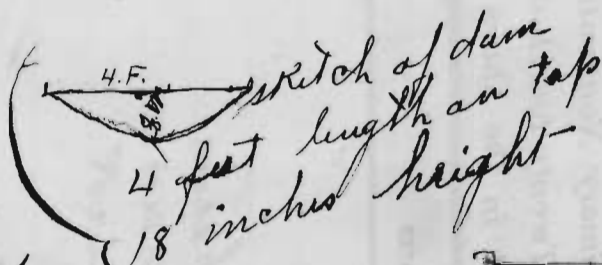 4.F.
sketch of dam
4 feet length on top
18 inches height